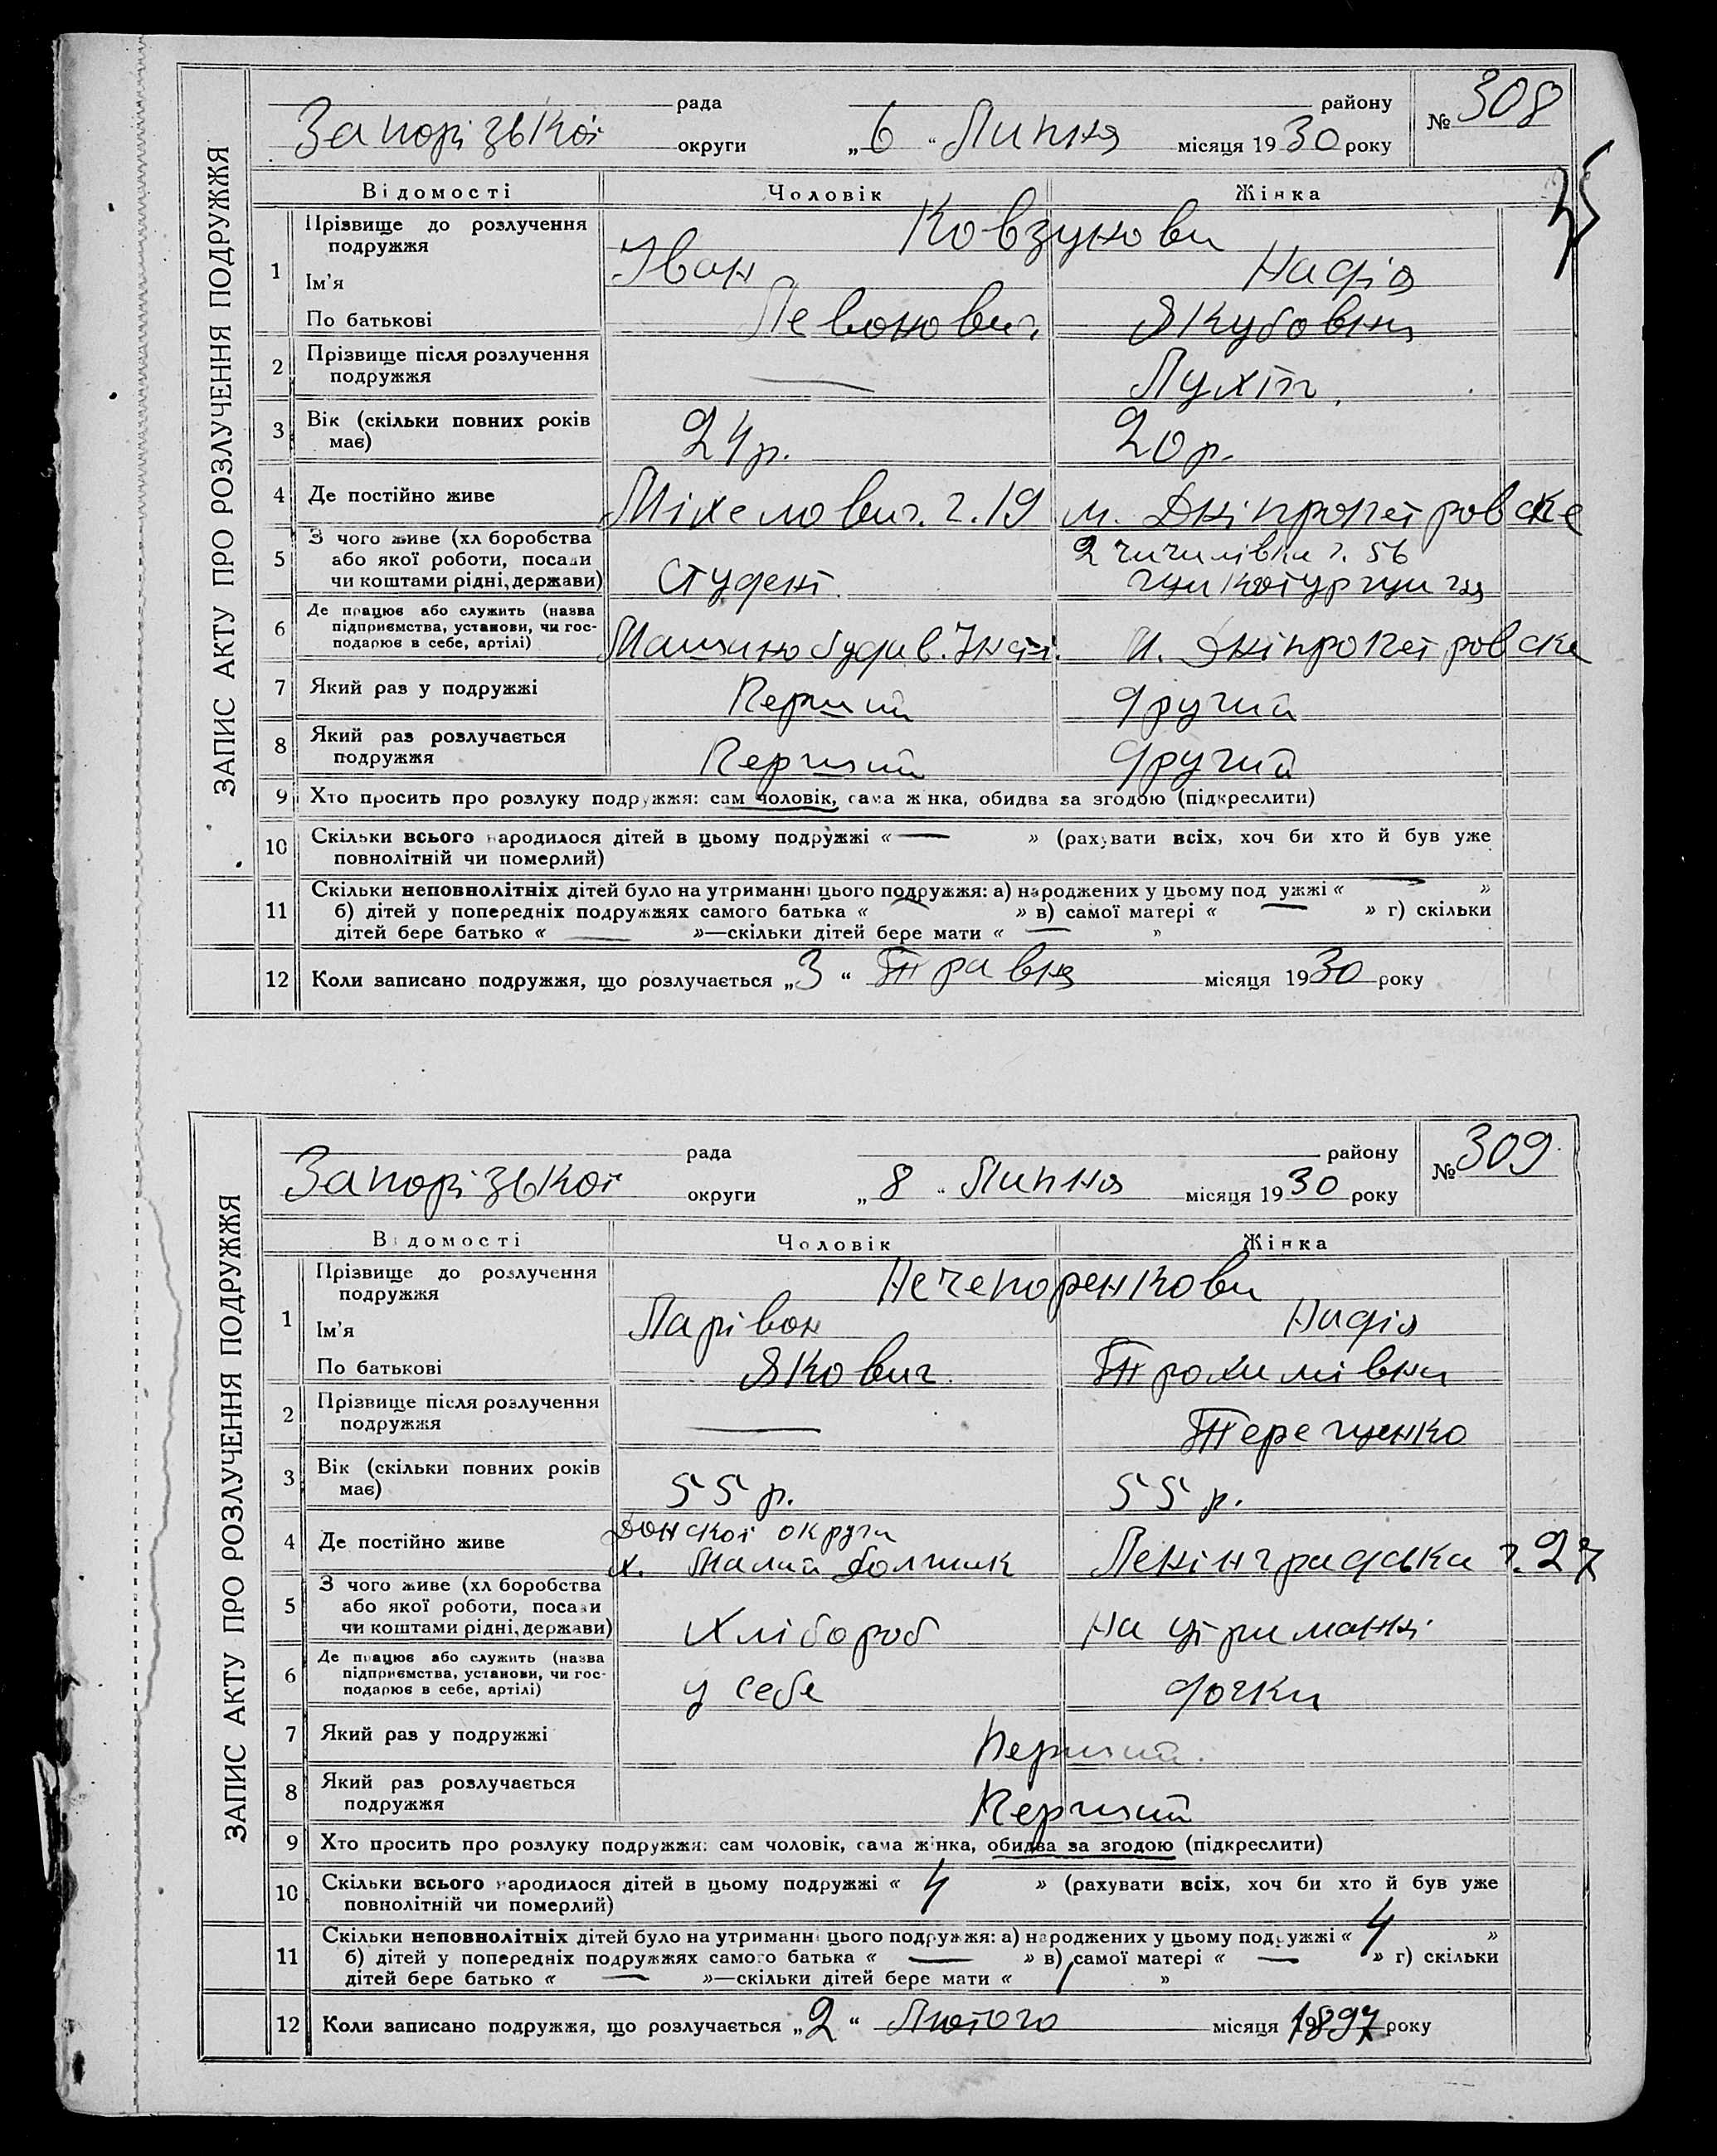 ЗАПИС АКТУ ПРО РОЗЛУЧЕННЯ ПОДРУЖЖЯ
рада району № 308
Запорізької округи „6“ Липня місяця 1930 року
Відомості Чоловік Жінка
1 Прізвище до розлучення подружжя Ковзунови
Ім'я Іван Надія
По батькові Левонович Якубовна
2 Прізвище після розлучення
подружжя — Лухт
3 Вік (скільки повних років
має) 24 р. 20 р.
4 Де постійно живе Міхелович. 19 м. Дніпропетровске
5 З чого живе (хліборобства
або якої роботи, посади
чи коштами рідні, держави) Студент г. 56
6 Де працює або служить (назва
підприємства, установи, чи гос-
подарює в себе, артілі) Машинобудів. Інст. М. Дніпропетровске
7 Який раз у подружжі Перший другий
8 Який раз розлучається
подружжя Перший другий
9 Хто просить про розлуку подружжя: сам чоловік, сама жінка, обидва за згодою (підкреслити)
10 Скільки всього народилося дітей в цьому подружжі «—» (рахувати всіх, хоч би хто й був уже
повнолітній чи померлий)
11 Скільки неповнолітніх дітей було на утриманні цього подружжя: а) народжених у цьому подружжі «—»
б) дітей у попередніх подружжях самого батька «—» в) самої матері «—» г) скільки
дітей бере батько «—»—скільки дітей бере мати «—»
12 Коли записано подружжя, що розлучається „3“ Травня місяця 1930 року
ЗАПИС АКТУ ПРО РОЗЛУЧЕННЯ ПОДРУЖЖЯ
рада району № 309
Запорізької округи „8“ Липня місяця 1930 року
Відомості Чоловік Жінка
1 Прізвище до розлучення
подружжя Нечепоренкови
Ім'я Ларівон Надія
По батькові Якович Трохимівна
2 Прізвище після розлучення
подружжя — Терещенко
3 Вік (скільки повних років
має) 55 р. 55 р.
4 Де постійно живе Донскої округи
х. Малий Ленінградська г. 27
5 З чого живе (хліборобства
або якої роботи, посади
чи коштами рідні, держави) Хлібороб На утриманні
6 Де працює або служить (назва
підприємства, установи, чи гос-
подарює в себе, артілі) у себе дочки
7 Який раз у подружжі Перший.
8 Який раз розлучається
подружжя Перший
9 Хто просить про розлуку подружжя: сам чоловік, сама жінка, обидва за згодою (підкреслити)
10 Скільки всього народилося дітей в цьому подружжі «4» (рахувати всіх, хоч би хто й був уже
повнолітній чи померлий)
11 Скільки неповнолітніх дітей було на утриманні цього подружжя: а) народжених у цьому подружжі «4»
б) дітей у попередніх подружжях самого батька «—» в) самої матері «—» г) скільки
дітей бере батько «—»—скільки дітей бере мати «/»
12 Коли записано подружжя, що розлучається „2“ Лютого місяця 1897 року